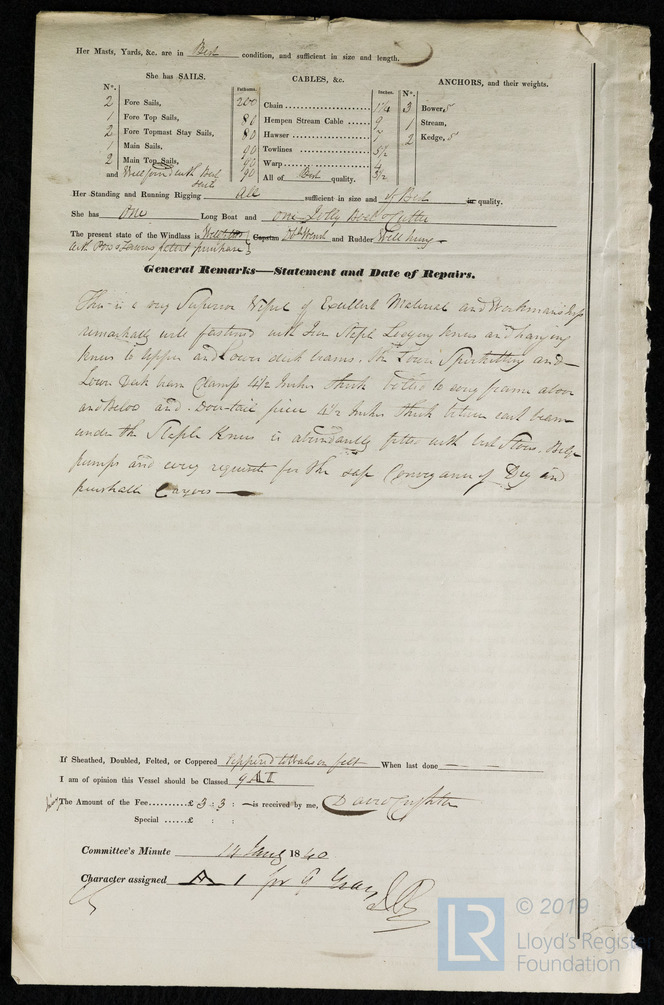 Her Masts, Yards, &c. are in Best condition, and sufficient in size and length.
She has SAILS.
CABLES, &c.
ANCHORS, and their weights.
N°.
Fathoms.
Inches.
N°.
2 Fore Sails, 200 Chain 3 Bower,
1 Fore Top Sails, 80 Hempen Stream Cable 9 1 Stream,
2 Fore Topmast Stay Sails, 80 Hawser 7 2 Kedge,
1 Main Sails, 90 Towlines
2 Main Top Sails, 90 Warp 4
and Well found with Best 90 All of Best quality.
Her Standing and Running Rigging all sufficient in size and of Best in quality.
She has One Long Boat and one Jolly Boat & Cutter
The present state of the Windlass is Capstan and Rudder Well hung
General Remarks—Statement and Date of Repairs.
This is a very Superior Vessel of Excellent Material and Workmanship
remarkably well fastened with Iron Staple Lodging Knees and hanging
Knees to upper and Lower deck beams. The Lower Spirketting and
Lower Deck beam Clamps 4½ Inches thick bolted to every frame above
and Below and Dove-tail piece 4½ Inches thick between each beam
under the Staple Knees is abundantly fitted with Bilge
pumps and every requisite for the safe Conveyance of Dry and
perishable Cargoes
If Sheathed, Doubled, Felted, or Coppered Coppered felt When last done — —
I am of opinion this Vessel should be Classed 9 A I
The Amount of the Fee..........£ 3 : 3 : — is received by me,
Special ......£ : :
Committee's Minute 14 Jany 1840
Character assigned A 1 for 9 Years
LR
© 2019
Lloyd's Register
Foundation